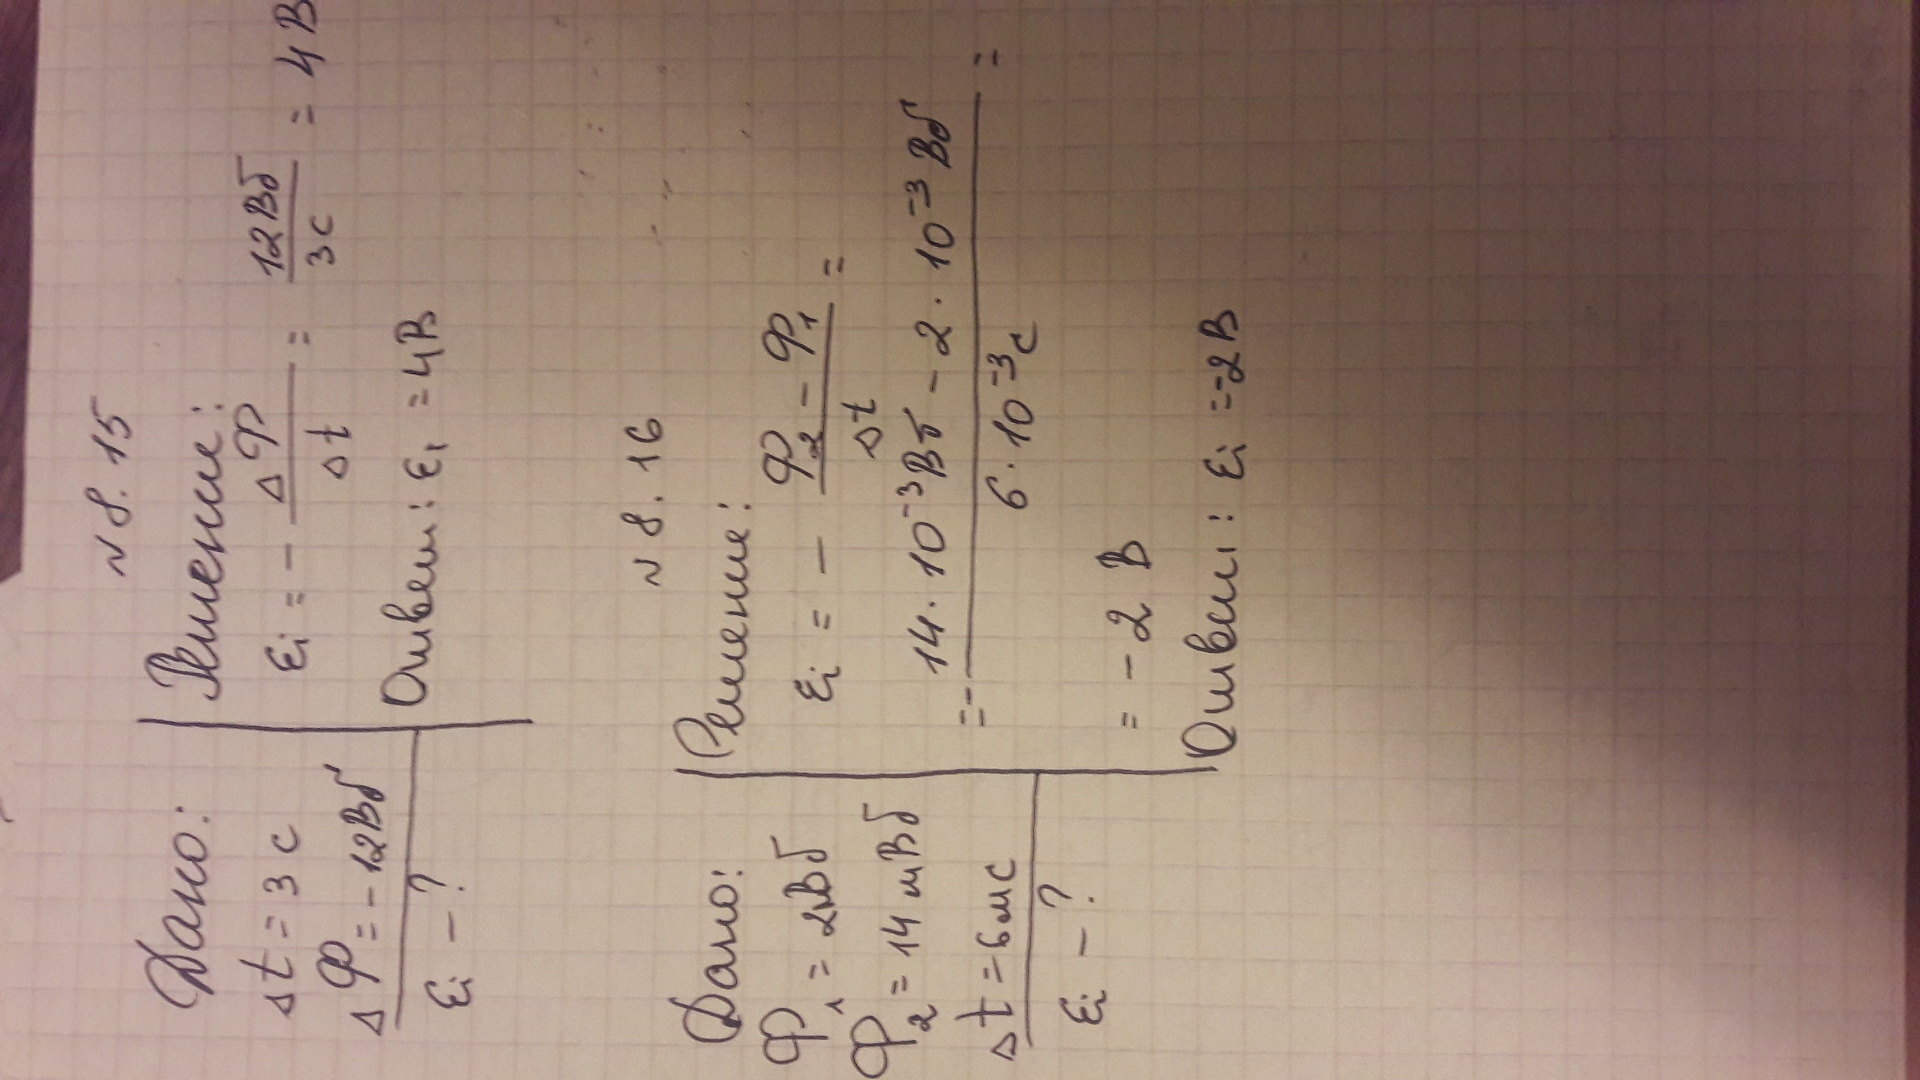 N 8.15
Дано:
Δt = 3 с
ΔФ = - 12Вб
Ɛi - ?
Решение:
Ɛi = - ΔФ/Δt = 12Вб/3с = 4В
Ответ: Ɛi = 4В
N 8.16
Дано:
Ф1 = 2Вб
Ф2 = 14 мВб
Δt = 6мс
Ɛi - ?
Решение:
Ɛi = - Ф2 - Ф1/Δt =
= - 14 · 10⁻³Вб - 2 · 10⁻³Вб/6 · 10⁻³с =
= - 2 В
Ответ: Ɛi = -2В